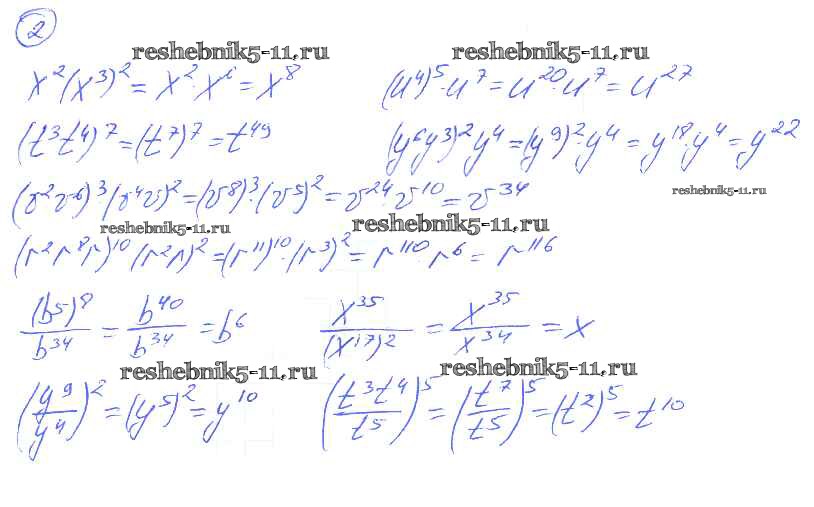 2
reshebnik5-11.ru reshebnik5-11.ru
x²(x³)² = x²·x⁶ = x⁸ (u⁴)⁵·u⁷ = u²⁰·u⁷ = u²⁷
(t³t⁴)⁷ = (t⁷)⁷ = t⁴⁹ (y⁶y³)²y⁴ = (y⁹)²·y⁴ = y¹⁸·y⁴ = y²²
reshebnik5-11.ru
(v²v⁶)³(v⁴v)² = (v⁸)³·(v⁵)² = v²⁴·v¹⁰ = v³⁴
reshebnik5-11.ru reshebnik5-11.ru
(r²r⁸r)¹⁰(r²r)² = (r¹¹)¹⁰·(r³)² = r¹¹⁰r⁶ = r¹¹⁶
(b⁵)⁸/b³⁴ = b⁴⁰/b³⁴ = b⁶ x³⁵/(x¹⁷)² = x³⁵/x³⁴ = x
reshebnik5-11.ru reshebnik5-11.ru
(y⁹/y⁴)² = (y⁵)² = y¹⁰ (t³t⁴/t⁵)⁵ = (t⁷/t⁵)⁵ = (t²)⁵ = t¹⁰